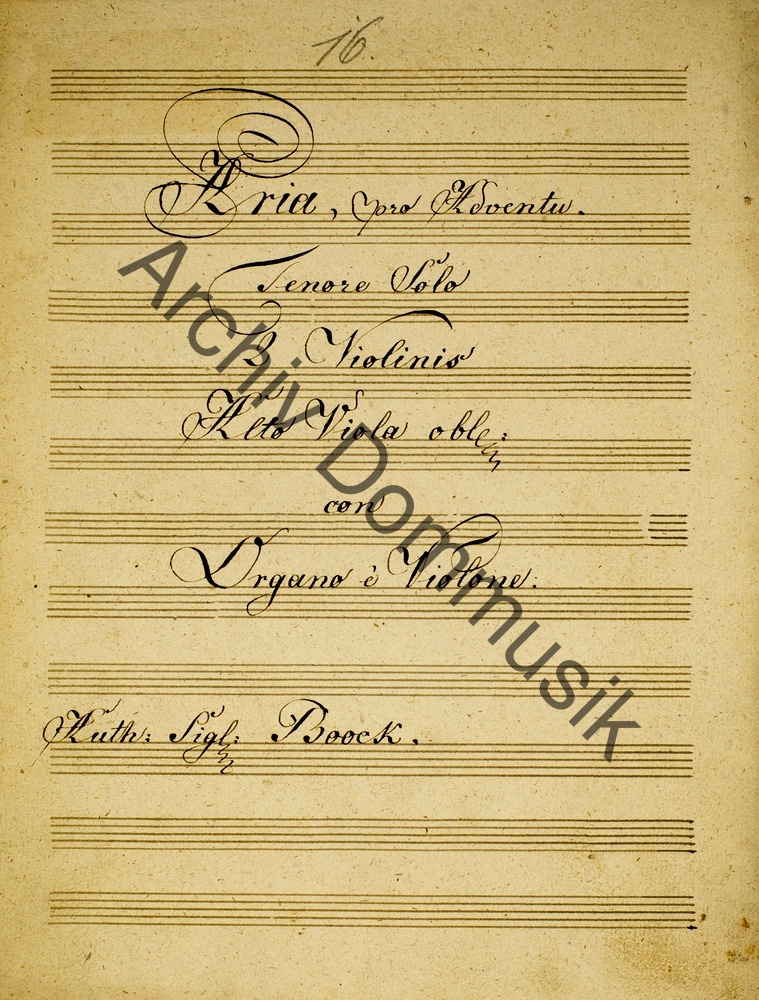 16.
Aria, pro Adventu.
Tenore Solo
2 Violinis
Alto Viola oble:
con
Organo è Violone.
Auth: Sigl: Boock.
Archiv Dommusik